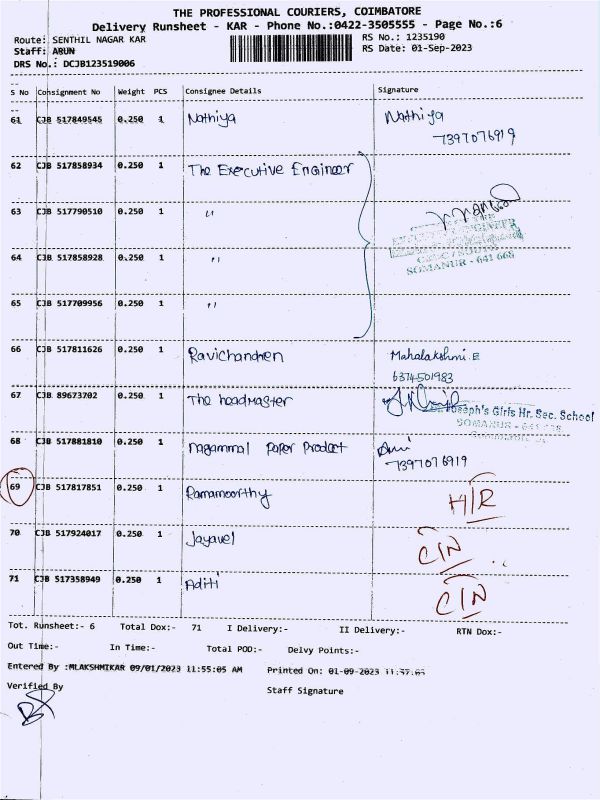 THE PROFESSIONAL COURIERS, COIMBATORE
Delivery Runsheet - KAR - Phone No.:0422-3505555 - Page No.:6
Route: SENTHIL NAGAR KAR RS No.: 1235190
Staff: ARUN RS Date: 01-Sep-2023
DRS No.: DCJB123519006
S No Consignment No Weight PCS Consignee Details Signature
61 CJB 517849545 0.250 1 Nathiya Nathiya
7397076919
62 CJB 517858934 0.250 1 The Executive Engineer
63 CJB 517790510 0.250 1 "
64 CJB 517858928 0.250 1 "
SOMANUR - 641 668
65 CJB 517709956 0.250 1 "
66 CJB 517811626 0.250 1 Ravichandren Mahalakshmi.E
6374501983
67 CJB 89673702 0.250 1 The headmaster Joseph's Girls Hr. Sec. School
SOMANUR - 641
68 CJB 517881810 0.250 1 nagammal Paper Product
7397076919
69 CJB 517817851 0.250 1 Ramamoorthy H/R
70 CJB 517924017 0.250 1 Jayavel C/N
71 CJB 517358949 0.250 1 Aditi C/N
Tot. Runsheet:- 6 Total Dox:- 71 I Delivery:- II Delivery:- RTN Dox:-
Out Time:- In Time:- Total POD:- Delvy Points:-
Entered By :MLAKSHMIKAR 09/01/2023 11:55:05 AM Printed On: 01-09-2023
Verified By Staff Signature